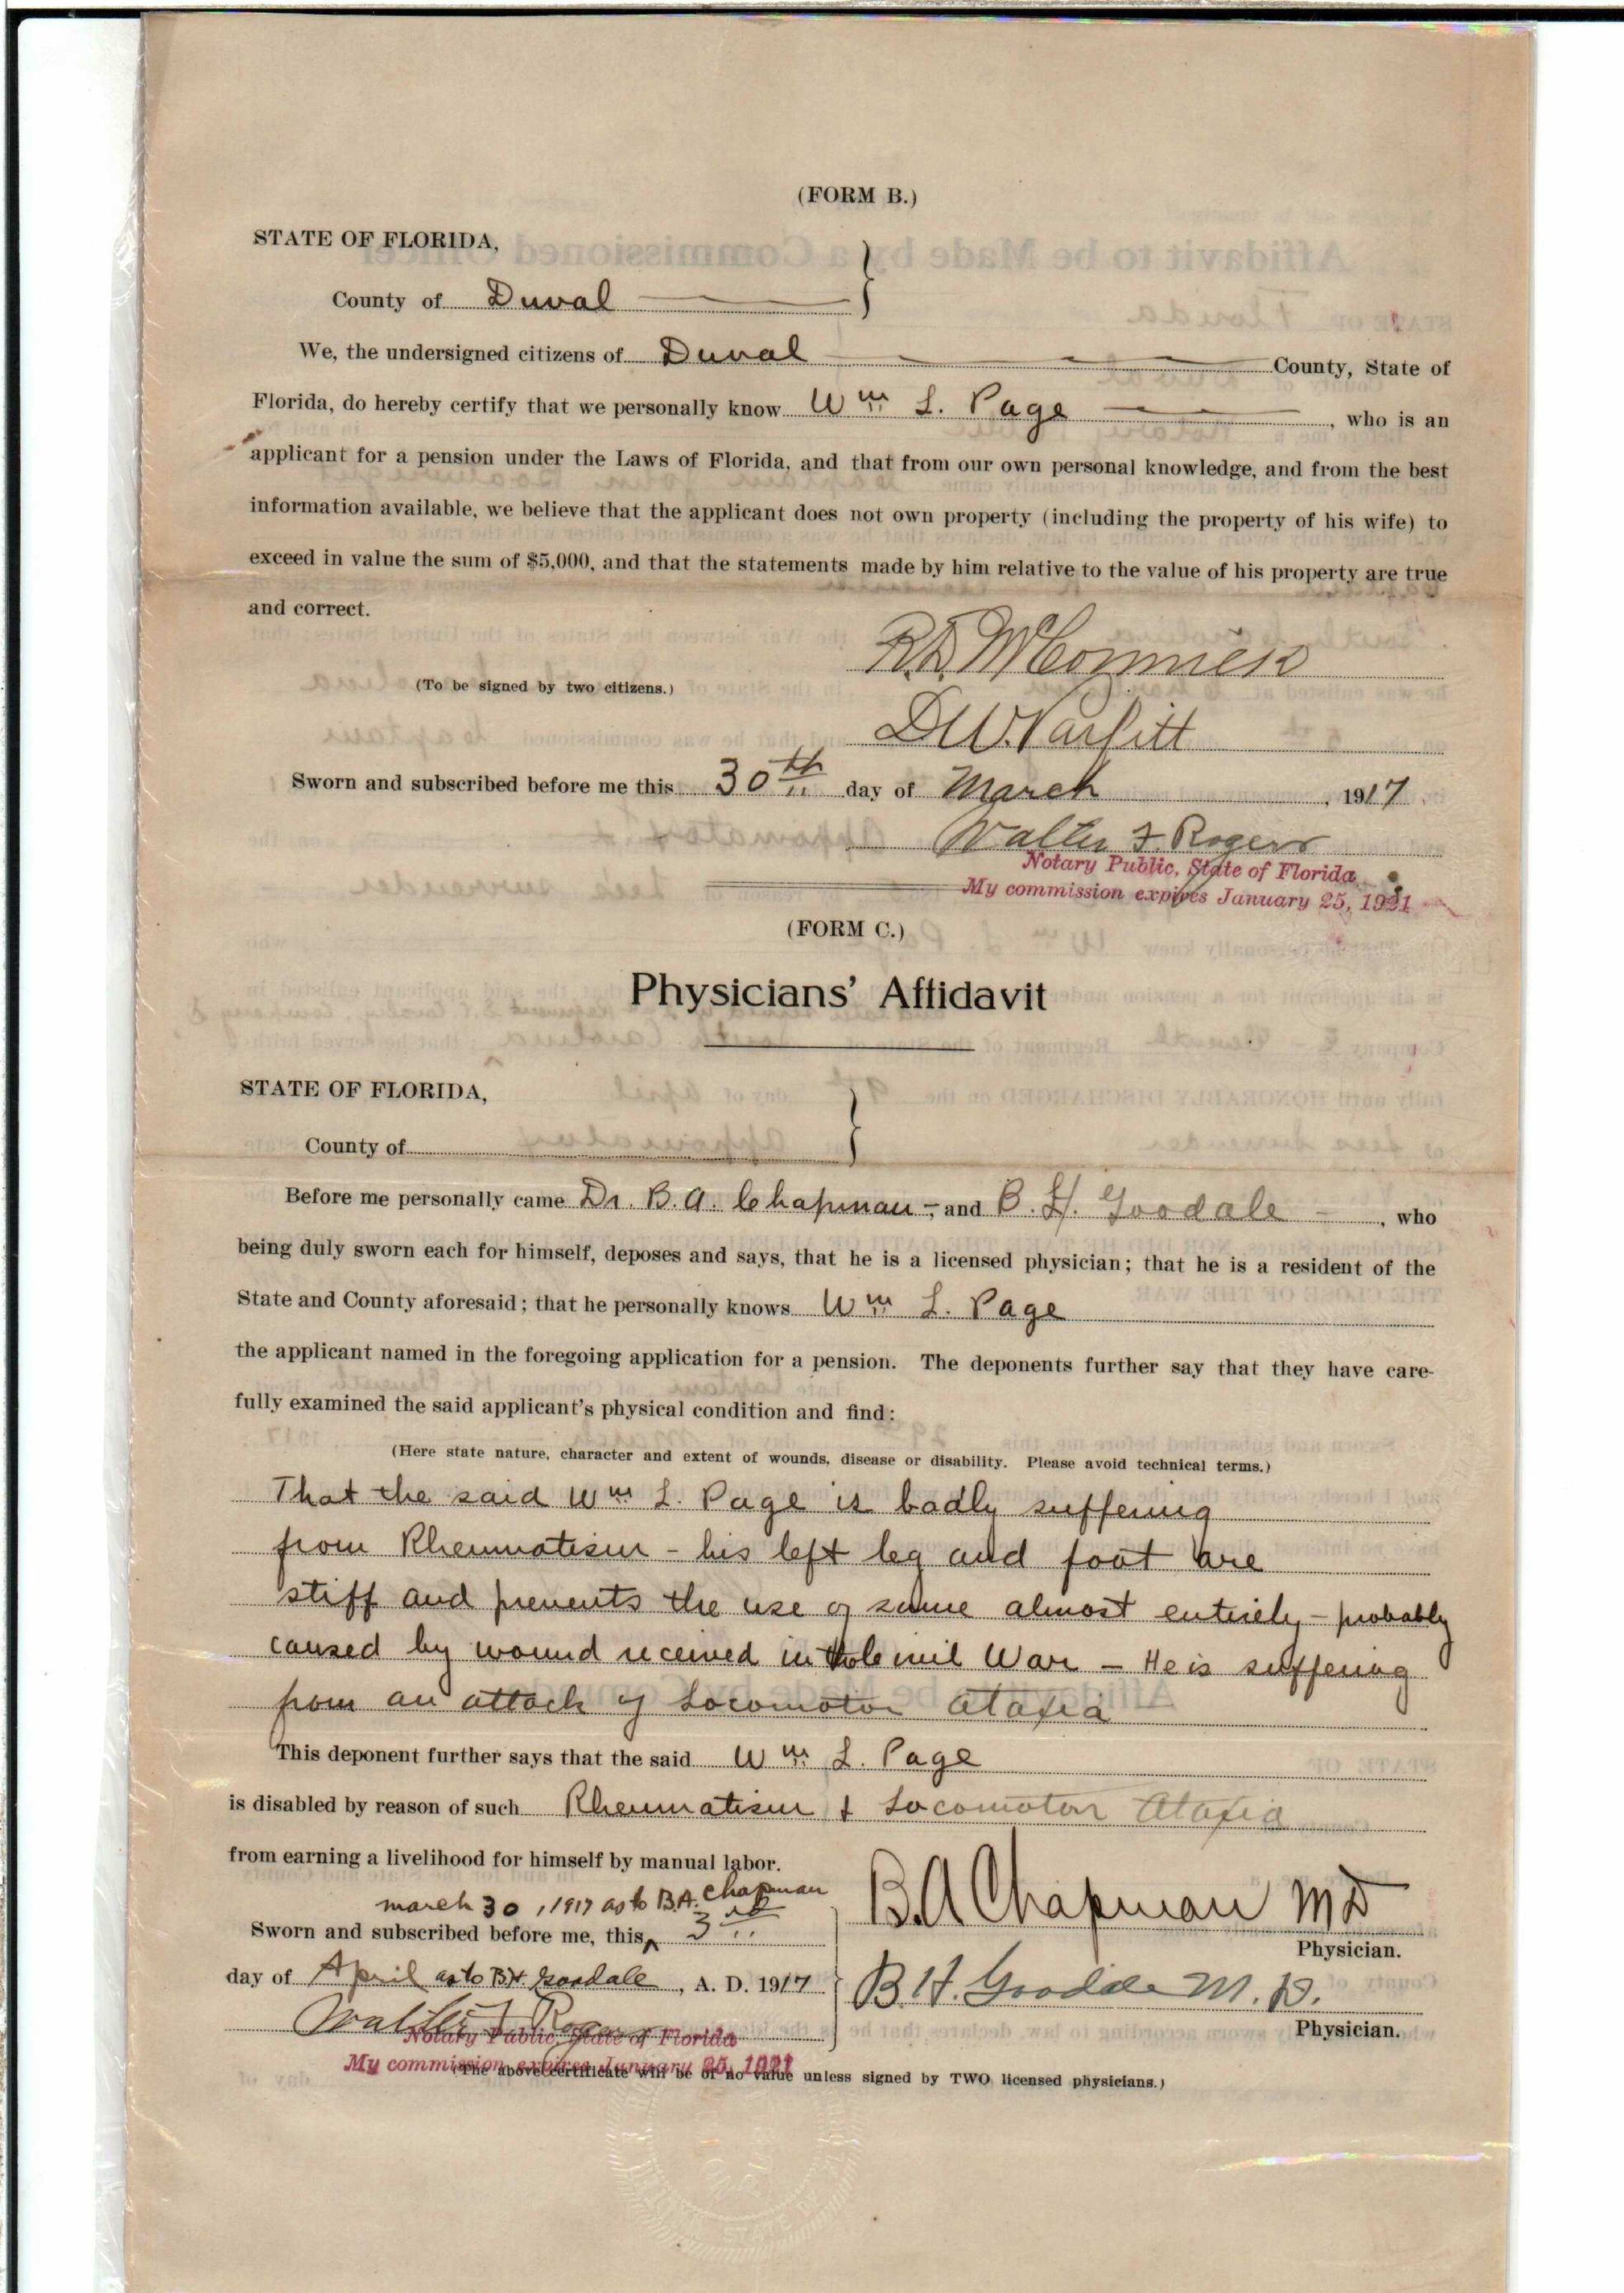 (FORM B.)
STATE OF FLORIDA,
County of Duval
We, the undersigned citizens of Duval County, State of
Florida, do hereby certify that we personally know Wm L. Page, who is an
applicant for a pension under the Laws of Florida, and that from our own personal knowledge, and from the best
information available, we believe that the applicant does not own property (including the property of his wife) to
exceed in value the sum of $5,000, and that the statements made by him relative to the value of his property are true
and correct.
R.D. McCormick
(To be signed by two citizens.)
D.W. Parfitt
Sworn and subscribed before me this 30th day of March, 1917.
Walter F. Rogers
Notary Public, State of Florida
My commission expires January 25, 1921
(FORM C.)
Physicians' Affidavit
STATE OF FLORIDA,
County of
Before me personally came Dr. B. A. Chapman - and B. H. Goodale, who
being duly sworn each for himself, deposes and says, that he is a licensed physician; that he is a resident of the
State and County aforesaid; that he personally knows Wm L. Page
the applicant named in the foregoing application for a pension. The deponents further say that they have care-
fully examined the said applicant's physical condition and find:
(Here state nature, character and extent of wounds, disease or disability. Please avoid technical terms.)
That the said Wm L. Page is badly suffering
from Rheumatism - his left leg and foot are
stiff and prevents the use of same almost entirely - probably
caused by wound received in the Civil War - He is suffering
from an attack of Locomotor Ataxia
This deponent further says that the said Wm L. Page
is disabled by reason of such Rheumatism & Locomotor Ataxia
from earning a livelihood for himself by manual labor.
march 30, 1917 as to B.A. Chapman
B.A Chapman MD
Sworn and subscribed before me, this 3rd
Physician.
day of April as to B.H. Goodale, A. D. 1917
B.H. Goodale M.D.
Walter F. Rogers
Notary Public, State of Florida
Physician.
My commission expires January 25, 1921
(The above certificate will be of no value unless signed by TWO licensed physicians.)